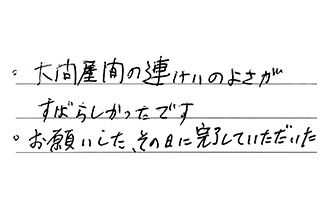 。大間屋間の連けいのよさが
すばらしかったです
。お願いした、その日に完了していただいた